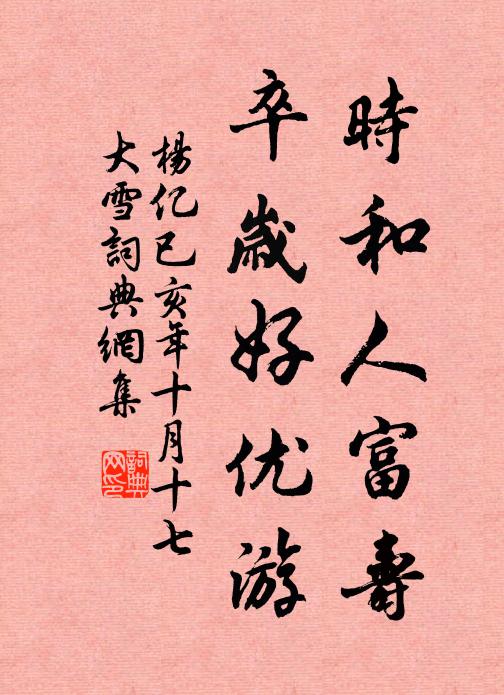 時和人富壽
卒歲好优游
楊亿己亥年十月十七
大雪詞典網集
詞典網印